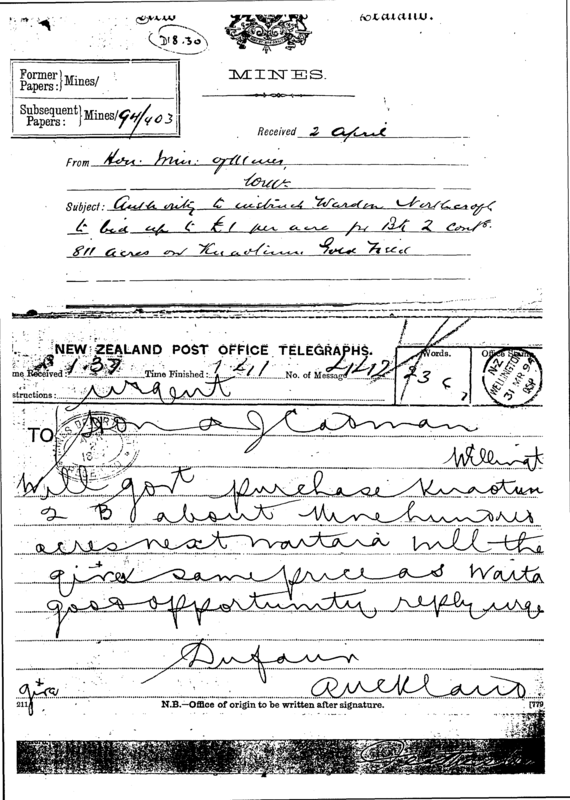 New Zealand.
D18.30
MINES.
Former Papers: } Mines/
Subsequent Papers: } Mines/ 94/403
Received 2 April
From Hon. Min. of Mines,
Subject: Authority to instruct Warden Northcroft
to bid up to £1 per acre for Blk 2 contg.
811 acres on Kuaotunu Gold Field
NEW ZEALAND POST OFFICE TELEGRAPHS.
me Received: 1.37 Time Finished: 1 41 No. of Message
Words. Office Stamp
N-Z WELLINGTON 31 MR 94
structions: urgent
TO Hon J Cadman
Wellingt
Will govt purchase Kuaotun
2 B about nine hundred
acres next Waitaia will the
give same price as Waita
good opportunity reply urge
Dufaur
give Auckland
211] N.B.—Office of origin to be written after signature. [779